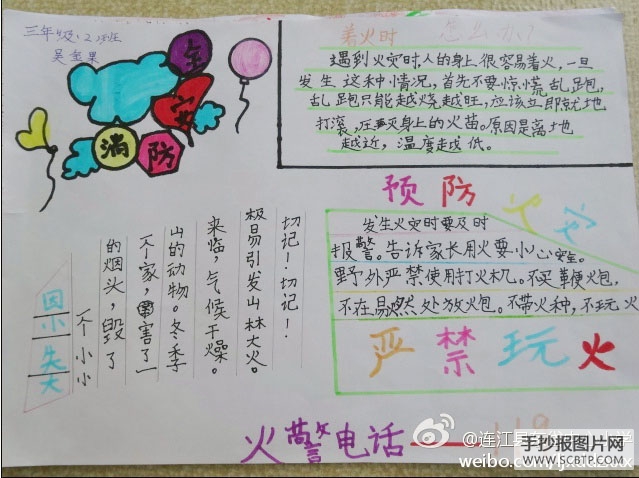 全
安
消防
着火时 怎么办?
遇到火灾时,人的身上很容易着火,一旦
发生这种情况,首先不要惊慌乱跑,
乱跑只能越烧越旺,应该立即就地
打滚,压灭身上的火苗。原因是离地
越近,温度越低。
预防
发生火灾时要及时
报警。告诉家长用火要小心安全。
野外严禁使用打火机。不买鞭火包,
不在易燃处放火包。不带火种,不玩火
严禁玩火
因小失大
一个小小
的烟头,毁了
一个家,害了一
山的动物。冬季
来临,气候干燥。
极易引发山林大火。
切记!切记!
火警电话——119
手抄报图片网
WWW.SCBTP.COM